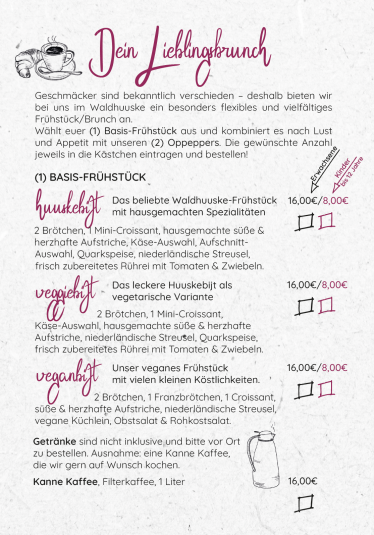 Dein Lieblingsbrunch
Geschmäcker sind bekanntlich verschieden – deshalb bieten wir
bei uns im Waldhuuske ein besonders flexibles und vielfältiges
Frühstück/Brunch an.
Wählt euer (1) Basis-Frühstück aus und kombiniert es nach Lust
und Appetit mit unseren (2) Oppeppers. Die gewünschte Anzahl
jeweils in die Kästchen eintragen und bestellen!
Erwachsene
Kinder
bis 12 Jahre
(1) BASIS-FRÜHSTÜCK
huuskebijt
Das beliebte Waldhuuske-Frühstück
mit hausgemachten Spezialitäten
16,00€/8,00€
2 Brötchen, 1 Mini-Croissant, hausgemachte süße &
herzhafte Aufstriche, Käse-Auswahl, Aufschnitt-
Auswahl, Quarkspeise, niederländische Streusel,
frisch zubereitetes Rührei mit Tomaten & Zwiebeln.
veggiebijt
Das leckere Huuskebijt als
vegetarische Variante
16,00€/8,00€
2 Brötchen, 1 Mini-Croissant,
Käse-Auswahl, hausgemachte süße & herzhafte
Aufstriche, niederländische Streusel, Quarkspeise,
frisch zubereitetes Rührei mit Tomaten & Zwiebeln.
veganbijt
Unser veganes Frühstück
mit vielen kleinen Köstlichkeiten.
16,00€/8,00€
2 Brötchen, 1 Franzbrötchen, 1 Croissant,
süße & herzhafte Aufstriche, niederländische Streusel,
vegane Küchlein, Obstsalat & Rohkostsalat.
Getränke sind nicht inklusive und bitte vor Ort
zu bestellen. Ausnahme: eine Kanne Kaffee,
die wir gern auf Wunsch kochen.
Kanne Kaffee, Filterkaffee, 1 Liter
16,00€